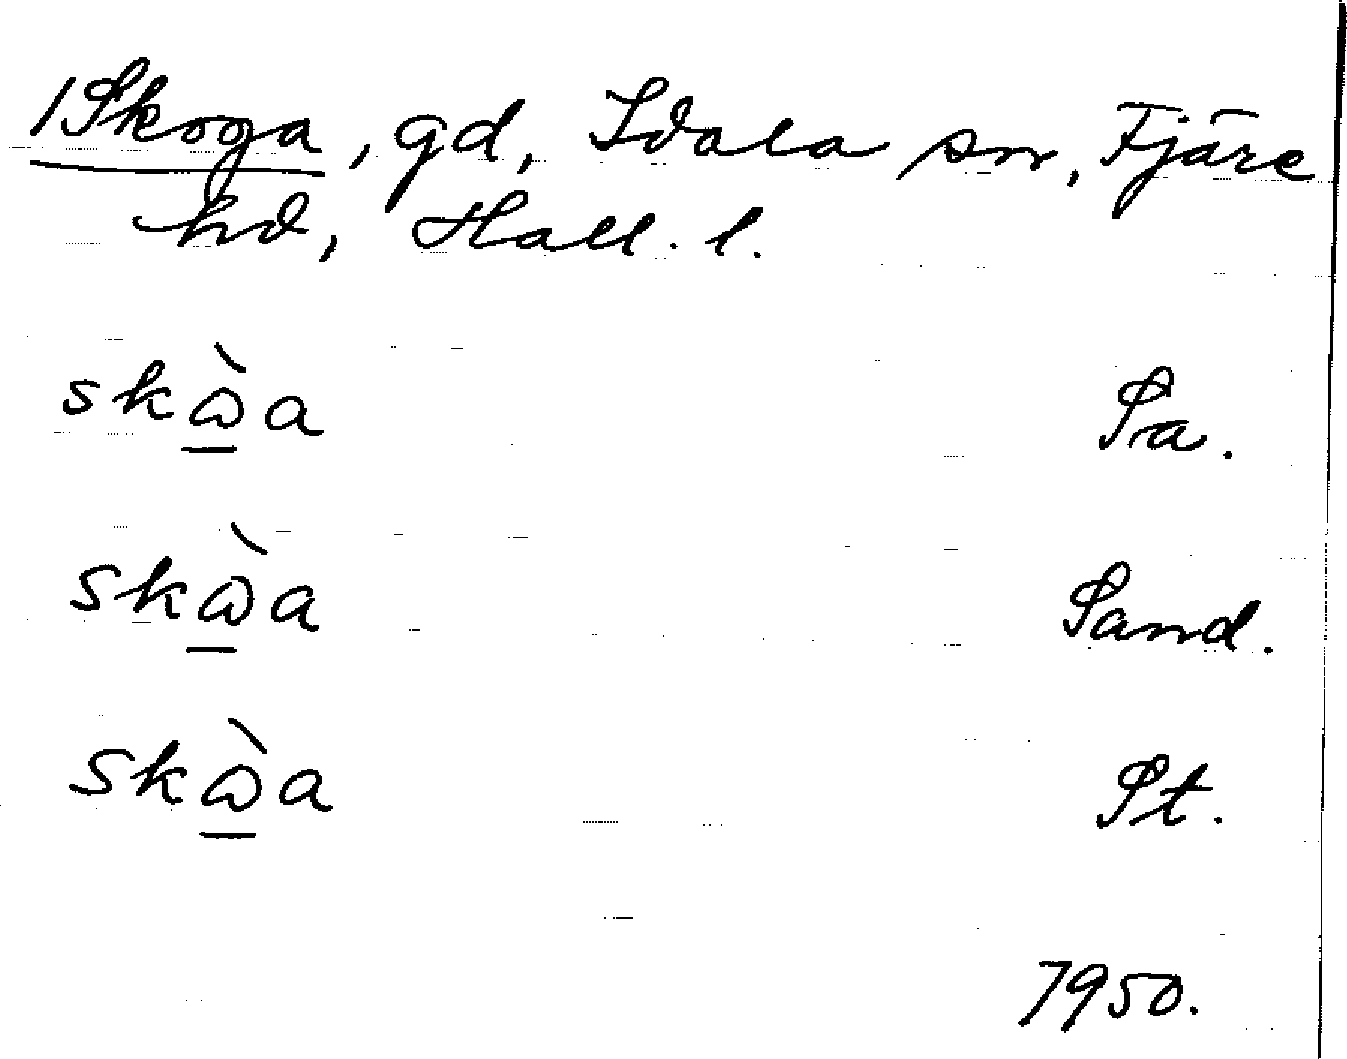 1 Skoga, gd, Idala sn, Fjäre
hd, Hall. l.
skὼ̱a Sa.
skὼ̱a Sand.
skὼ̱a St.
1950.